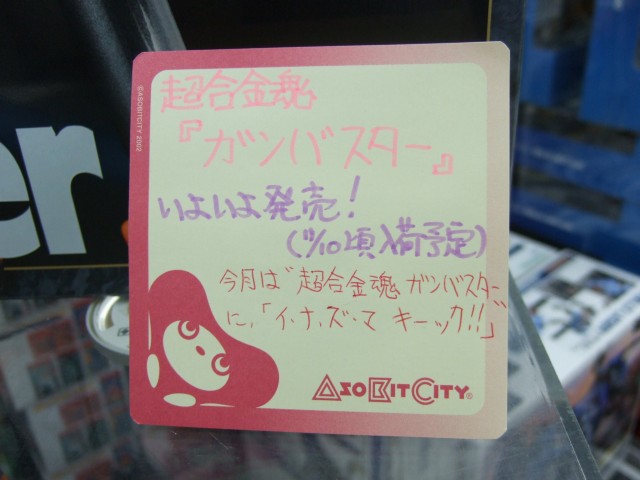 ©ASOBITCITY 2003
er
超合金魂
『ガンバスター』
いよいよ発売!
(11/10頃入荷予定)
今月は"超合金魂 ガンバスター"
に、「イ・ナ・ズ・マ キーック!!」
ASOBITCITY